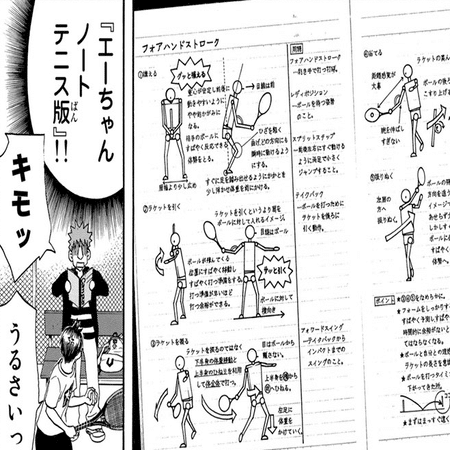 『エーちゃん
ノート
テニス版』!!
ばん
キモッ
うるさいっ
フォアハンドストローク
①構える
グッと構える
目線は前
重心が安定し前後に
動きやすいように
やや前かがみに
なる。
相手のボールに
すばやく反応できる
体勢をとる。
ひざを軽く
曲げどの方向にも
瞬時に動けるよう
にする。
肩幅より少し広め
すぐに足を踏み出せるようにかかとを
少し浮かせ体重を前にかける。
用語
フォアハンドストローク
―利き手で打つ打球。
レディポジション
―ボールを待つ姿勢
のこと。
スプリットステップ
―素早く左右にすぐ動ける
ように両足で小さく
ジャンプすること。
テイクバック
―ボールを打つために
ラケットを後ろに
引く動作。
フォワードスイング
―テイクバックから
インパクトまでの
スイングのこと。
②ラケットを引く
ラケットを引くというより肩を
ボールに対して入れるイメージ。
目線はボール
ボールが飛んでくる
位置にすばやく移動し
すばやく打つ準備をする。
打つ準備が早いほど
打つ余裕ができる。
サッと引く
ボールに対して
横向き
③ラケットを振る
ラケットを振るのではなく
下半身の体重移動と
上半身のひねりを利用
して体全体で打つ。
目はボールから
離さない。
上半身を後から
前へひねる。
左足に
体重を
かけていく。
④当てる
距離感覚が
大事
腕を伸ばし
すぎない
こすり上げる
⑤振りぬく
左肩の
方へ
振りぬく。
ポイント